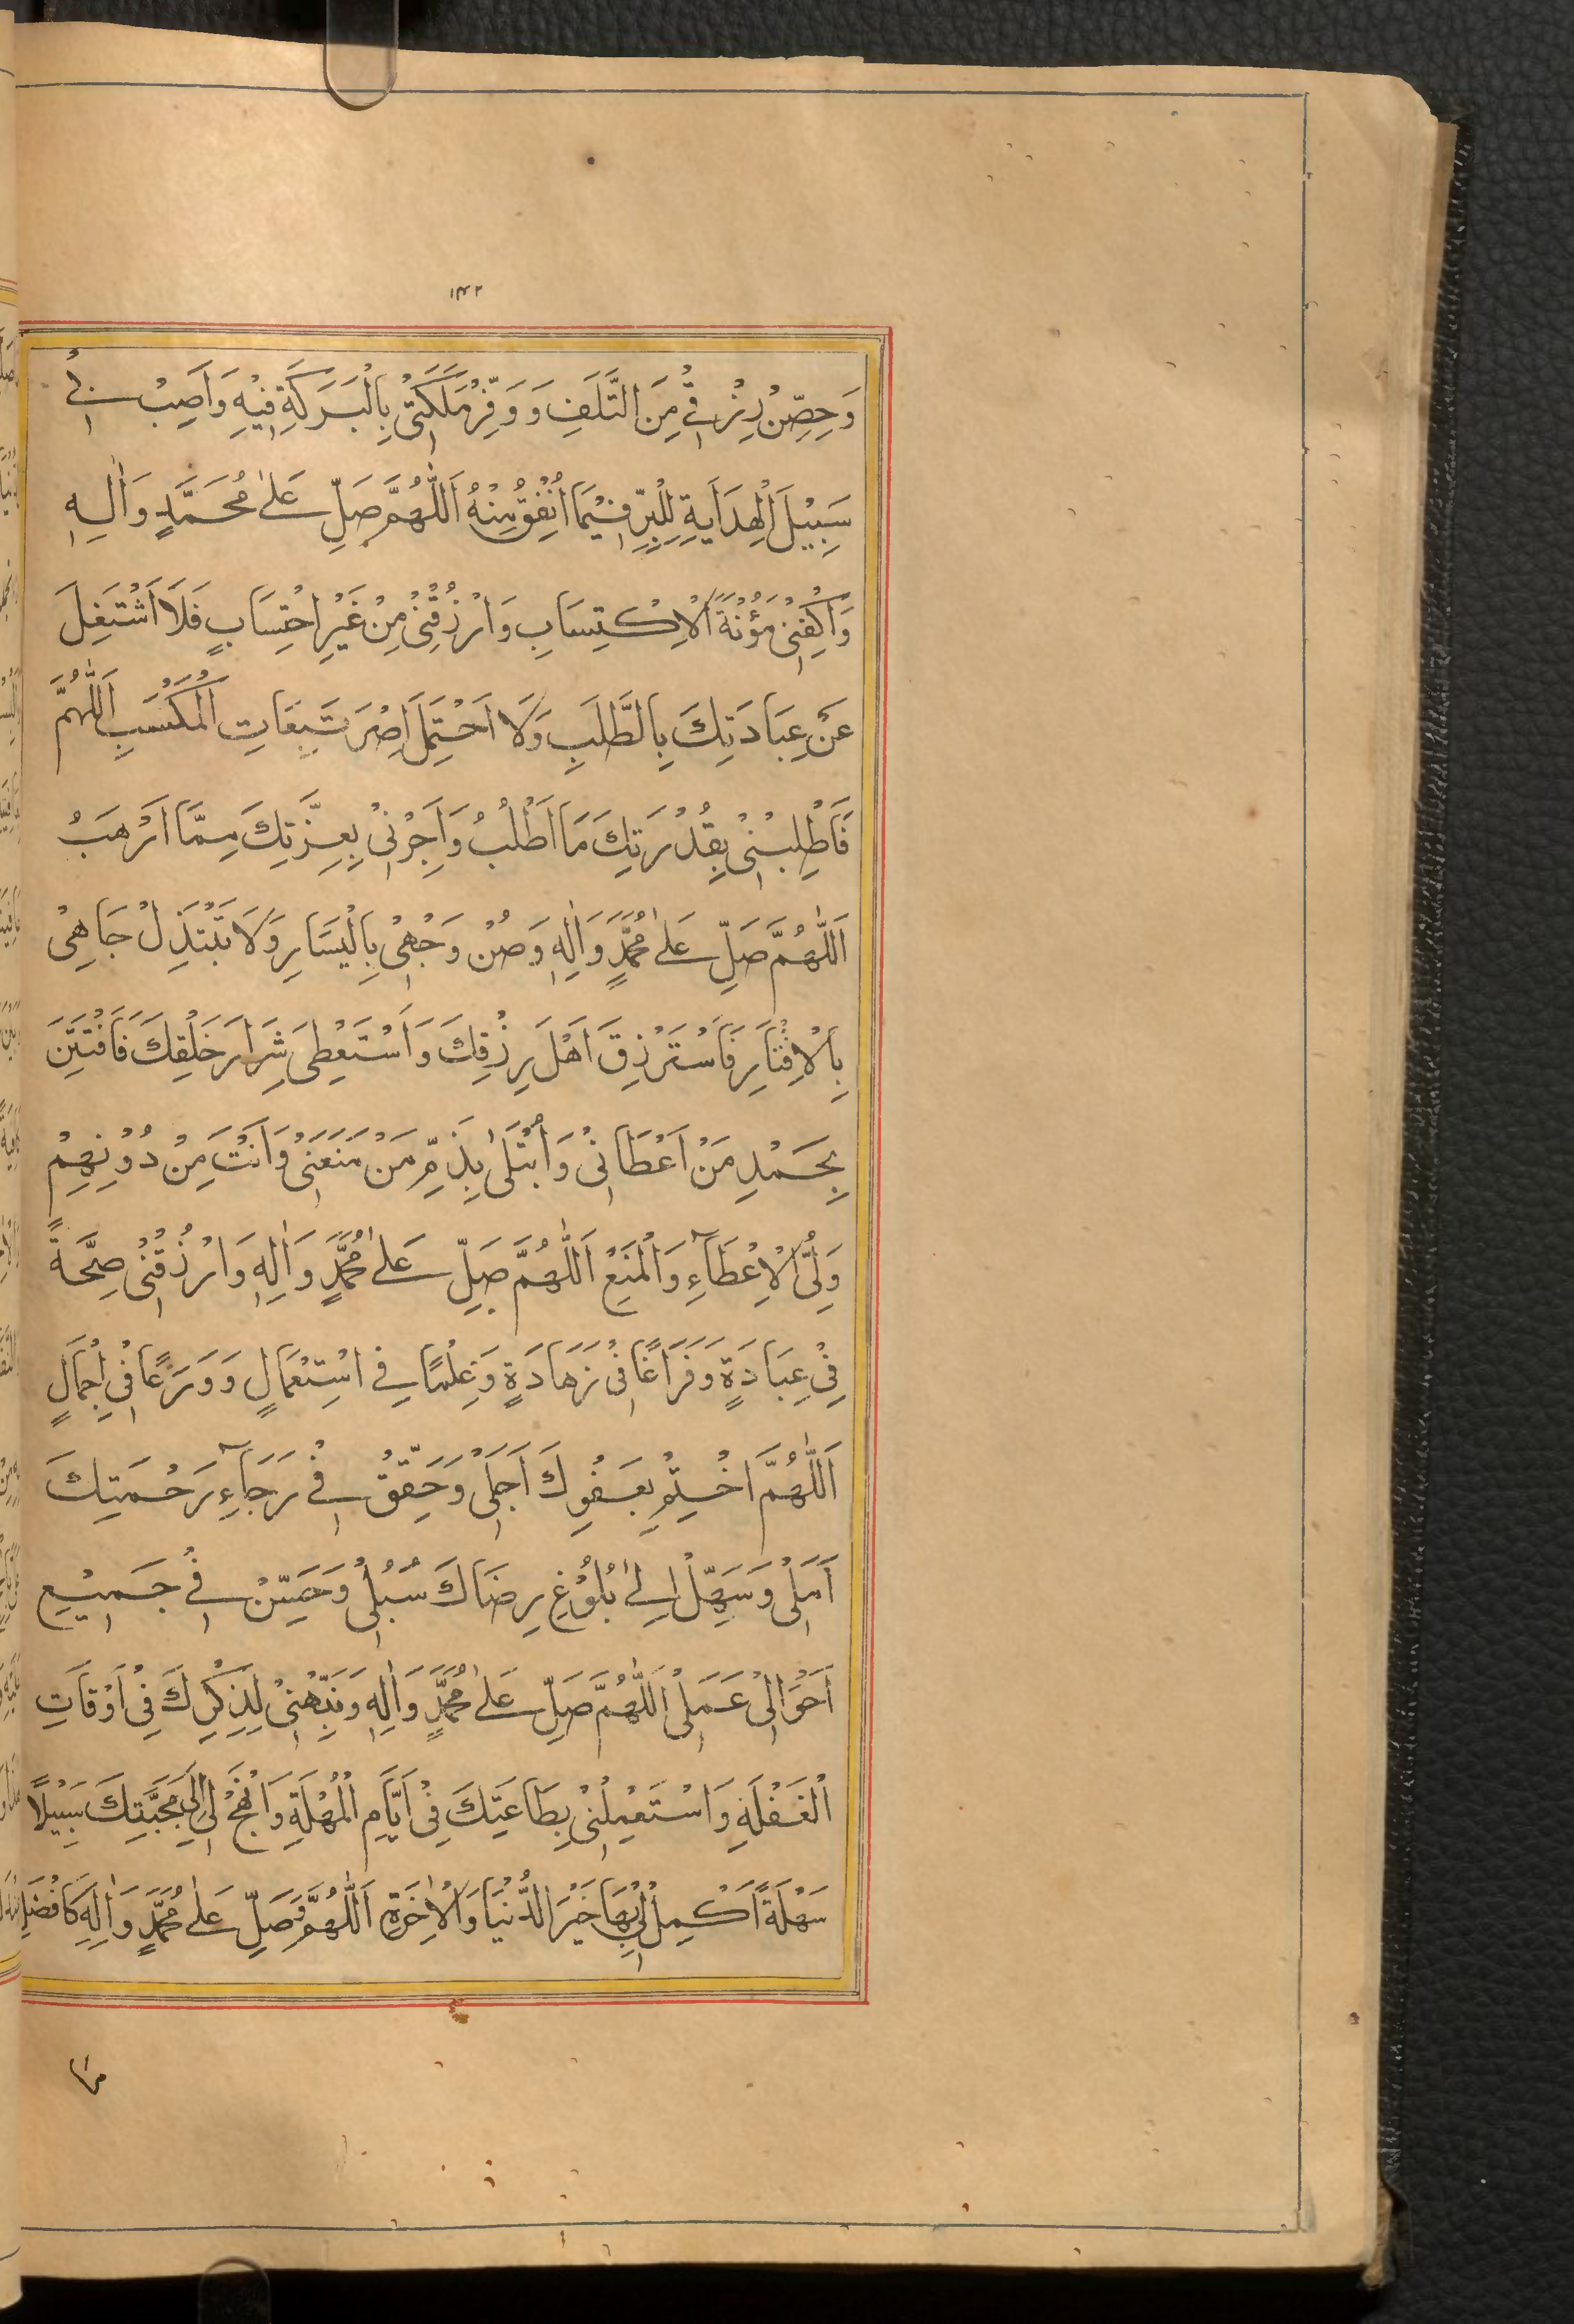 ۱۴۲
وَحَصِّنْ رِزْقِیْ مِنَ التَّلَفِ وَوَفِّرْ مَلَكَتِیْ بِالْبَرَكَةِ فِیْهِ وَاَصِبْ بِیْ
سَبِیْلَ الْهِدَایَةِ لِلْبِرِّ فِیْمَا اُنْفِقُ مِنْهُ اَللّٰهُمَّ صَلِّ عَلٰی مُحَمَّدٍ وَاٰلِهٖ
وَاكْفِنِیْ مَؤُنَةَ الْاِكْتِسَابِ وَارْزُقْنِیْ مِنْ غَیْرِ احْتِسَابٍ فَلَا اَشْتَغِلَ
عَنْ عِبَادَتِكَ بِالطَّلَبِ وَلَا اَحْتَمِلَ اِصْرَ تَبِعَاتِ الْمَكْسَبِ اَللّٰهُمَّ
فَاَطْلِبْنِیْ بِقُدْرَتِكَ مَا اَطْلُبُ وَاَجِرْنِیْ بِعِزَّتِكَ مِمَّا اَرْهَبُ
اَللّٰهُمَّ صَلِّ عَلٰی مُحَمَّدٍ وَاٰلِهٖ وَصُنْ وَجْهِیْ بِالْیَسَارِ وَلَا تَبْتَذِلْ جَاهِیْ
بِالْاِقْتَارِ فَاَسْتَرْزِقَ اَهْلَ رِزْقِكَ وَاَسْتَعْطِیَ شِرَارَ خَلْقِكَ فَاَفْتَتِنَ
بِحَمْدِ مَنْ اَعْطَانِیْ وَاُبْتَلٰی بِذَمِّ مَنْ مَنَعَنِیْ وَاَنْتَ مِنْ دُوْنِهِمْ
وَلِیُّ الْاِعْطَآءِ وَالْمَنْعِ اَللّٰهُمَّ صَلِّ عَلٰی مُحَمَّدٍ وَاٰلِهٖ وَارْزُقْنِیْ صِحَّةً
فِیْ عِبَادَةٍ وَفَرَاغًا فِیْ زَهَادَةٍ وَعِلْمًا فِی اسْتِعْمَالٍ وَوَرَعًا فِیْ اِجْمَالٍ
اَللّٰهُمَّ اخْتِمْ بِعَفْوِكَ اَجَلِیْ وَحَقِّقْ فِیْ رَجَآءِ رَحْمَتِكَ
اَمَلِیْ وَسَهِّلْ اِلٰی بُلُوْغِ رِضَاكَ سُبُلِیْ وَحَسِّنْ فِیْ جَمِیْعِ
اَحْوَالِیْ عَمَلِیْ اَللّٰهُمَّ صَلِّ عَلٰی مُحَمَّدٍ وَاٰلِهٖ وَنَبِّهْنِیْ لِذِكْرِكَ فِیْ اَوْقَاتِ
الْغَفْلَةِ وَاسْتَعْمِلْنِیْ بِطَاعَتِكَ فِیْ اَیَّامِ الْمُهْلَةِ وَانْهَجْ لِیْ اِلٰی مَحَبَّتِكَ سَبِیْلًا
سَهْلَةً اَكْمِلْ لِیْ بِهَا خَیْرَ الدُّنْیَا وَالْاٰخِرَةِ اَللّٰهُمَّ وَصَلِّ عَلٰی مُحَمَّدٍ وَاٰلِهٖ كَاَفْضَلِ